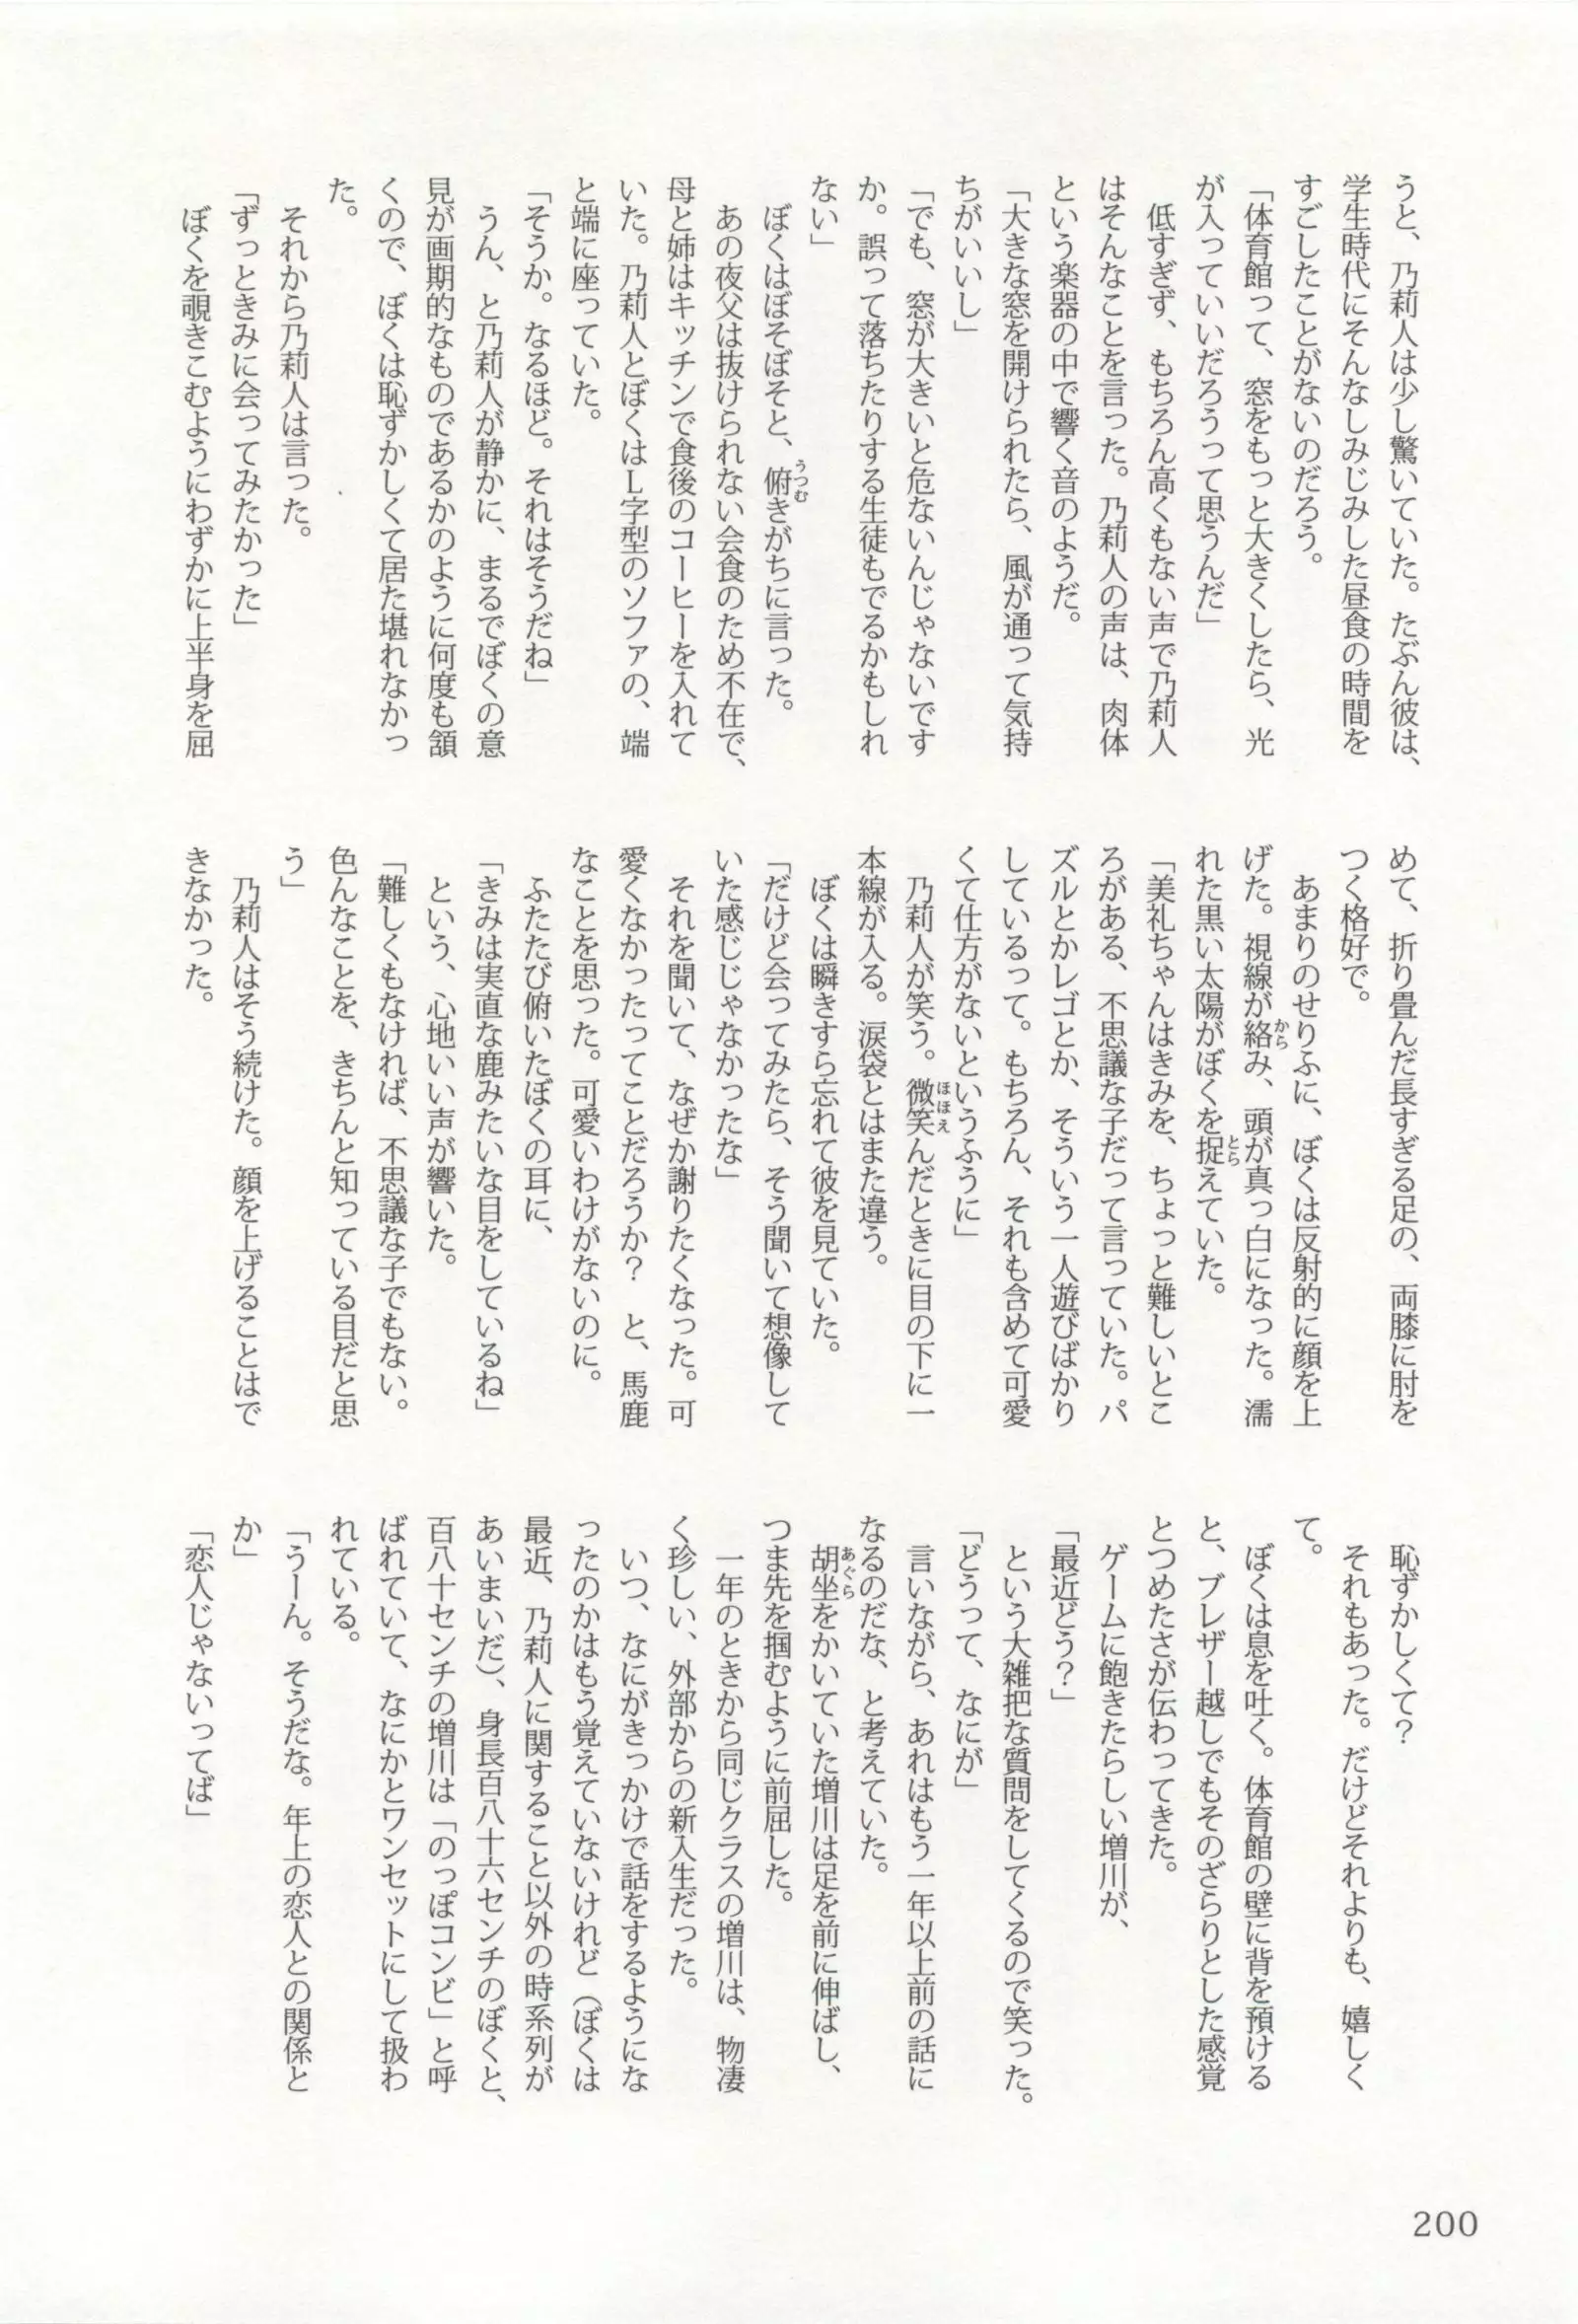 うと、乃莉人は少し驚いていた。たぶん彼は、
学生時代にそんなしみじみした昼食の時間を
すごしたことがないのだろう。
「体育館って、窓をもっと大きくしたら、光
が入っていいだろうって思うんだ」
　低すぎず、もちろん高くもない声で乃莉人
はそんなことを言った。乃莉人の声は、肉体
という楽器の中で響く音のようだ。
「大きな窓を開けられたら、風が通って気持
ちがいいし」
「でも、窓が大きいと危ないんじゃないです
か。誤って落ちたりする生徒もでるかもしれ
ない」
　ぼくはぼそぼそと、俯きがちに言った。
　あの夜父は抜けられない会食のため不在で、
母と姉はキッチンで食後のコーヒーを入れて
いた。乃莉人とぼくはL字型のソファの、端
と端に座っていた。
「そうか。なるほど。それはそうだね」
　うん、と乃莉人が静かに、まるでぼくの意
見が画期的なものであるかのように何度も頷
くので、ぼくは恥ずかしくて居た堪れなかっ
た。
　それから乃莉人は言った。
「ずっときみに会ってみたかった」
　ぼくを覗きこむようにわずかに上半身を屈
めて、折り畳んだ長すぎる足の、両膝に肘を
つく格好で。
　あまりのせりふに、ぼくは反射的に顔を上
げた。視線が絡み、頭が真っ白になった。濡
れた黒い太陽がぼくを捉えていた。
「美礼ちゃんはきみを、ちょっと難しいとこ
ろがある、不思議な子だって言っていた。パ
ズルとかレゴとか、そういう一人遊びばかり
しているって。もちろん、それも含めて可愛
くて仕方がないというふうに」
　乃莉人が笑う。微笑んだときに目の下に一
本線が入る。涙袋とはまた違う。
　ぼくは瞬きすら忘れて彼を見ていた。
「だけど会ってみたら、そう聞いて想像して
いた感じじゃなかったな」
　それを聞いて、なぜか謝りたくなった。可
愛くなかったってことだろうか？　と、馬鹿
なことを思った。可愛いわけがないのに。
　ふたたび俯いたぼくの耳に、
「きみは実直な鹿みたいな目をしているね」
　という、心地いい声が響いた。
「難しくもなければ、不思議な子でもない。
色んなことを、きちんと知っている目だと思
う」
　乃莉人はそう続けた。顔を上げることはで
きなかった。
　恥ずかしくて？
　それもあった。だけどそれよりも、嬉しく
て。
　ぼくは息を吐く。体育館の壁に背を預ける
と、ブレザー越しでもそのざらりとした感覚
とつめたさが伝わってきた。
　ゲームに飽きたらしい増川が、
「最近どう？」
　という大雑把な質問をしてくるので笑った。
「どうって、なにが」
　言いながら、あれはもう一年以上前の話に
なるのだな、と考えていた。
　胡坐をかいていた増川は足を前に伸ばし、
つま先を掴むように前屈した。
　一年のときから同じクラスの増川は、物凄
く珍しい、外部からの新入生だった。
　いつ、なにがきっかけで話をするようにな
ったのかはもう覚えていないけれど（ぼくは
最近、乃莉人に関すること以外の時系列が
あいまいだ）、身長百八十六センチのぼくと、
百八十センチの増川は「のっぽコンビ」と呼
ばれていて、なにかとワンセットにして扱わ
れている。
「うーん。そうだな。年上の恋人との関係と
か」
「恋人じゃないってば」
200